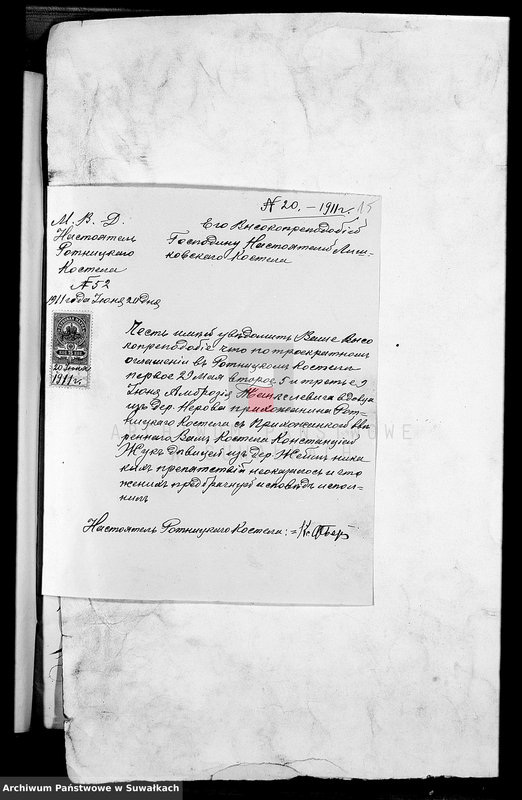 № 20. – 1911 г. 15
М. В. Д.
Настоятель
Ротницкаго
Костела
№ 52
1911 года Іюня 20 дня
Его Высокопреподобію
Господину Настоятелю Лиш-
ковскаго Костела
20 Іюня
1911 г.
Честь имѣю увѣдомить Ваше Высо
копреподобіе что по троекратномъ
оглашеніи въ Ротницкомъ Костелѣ
первое 29 Мая второе 5 и третье 9
Іюня Амброзія вдовца
изъ дер. Нерова прихожанина Рот-
ницкаго Костела съ Прихожанкой ввѣ
реннаго Вамъ Костела Констанціей
Жукъ дѣвицей изъ дер. ника
кихъ препятствій не оказалось и что
женихъ предбрачную исповѣдь испол-
нилъ
Настоятель Ротницкаго Костела: Кс.
Archiwum Państwowe w Suwałkach